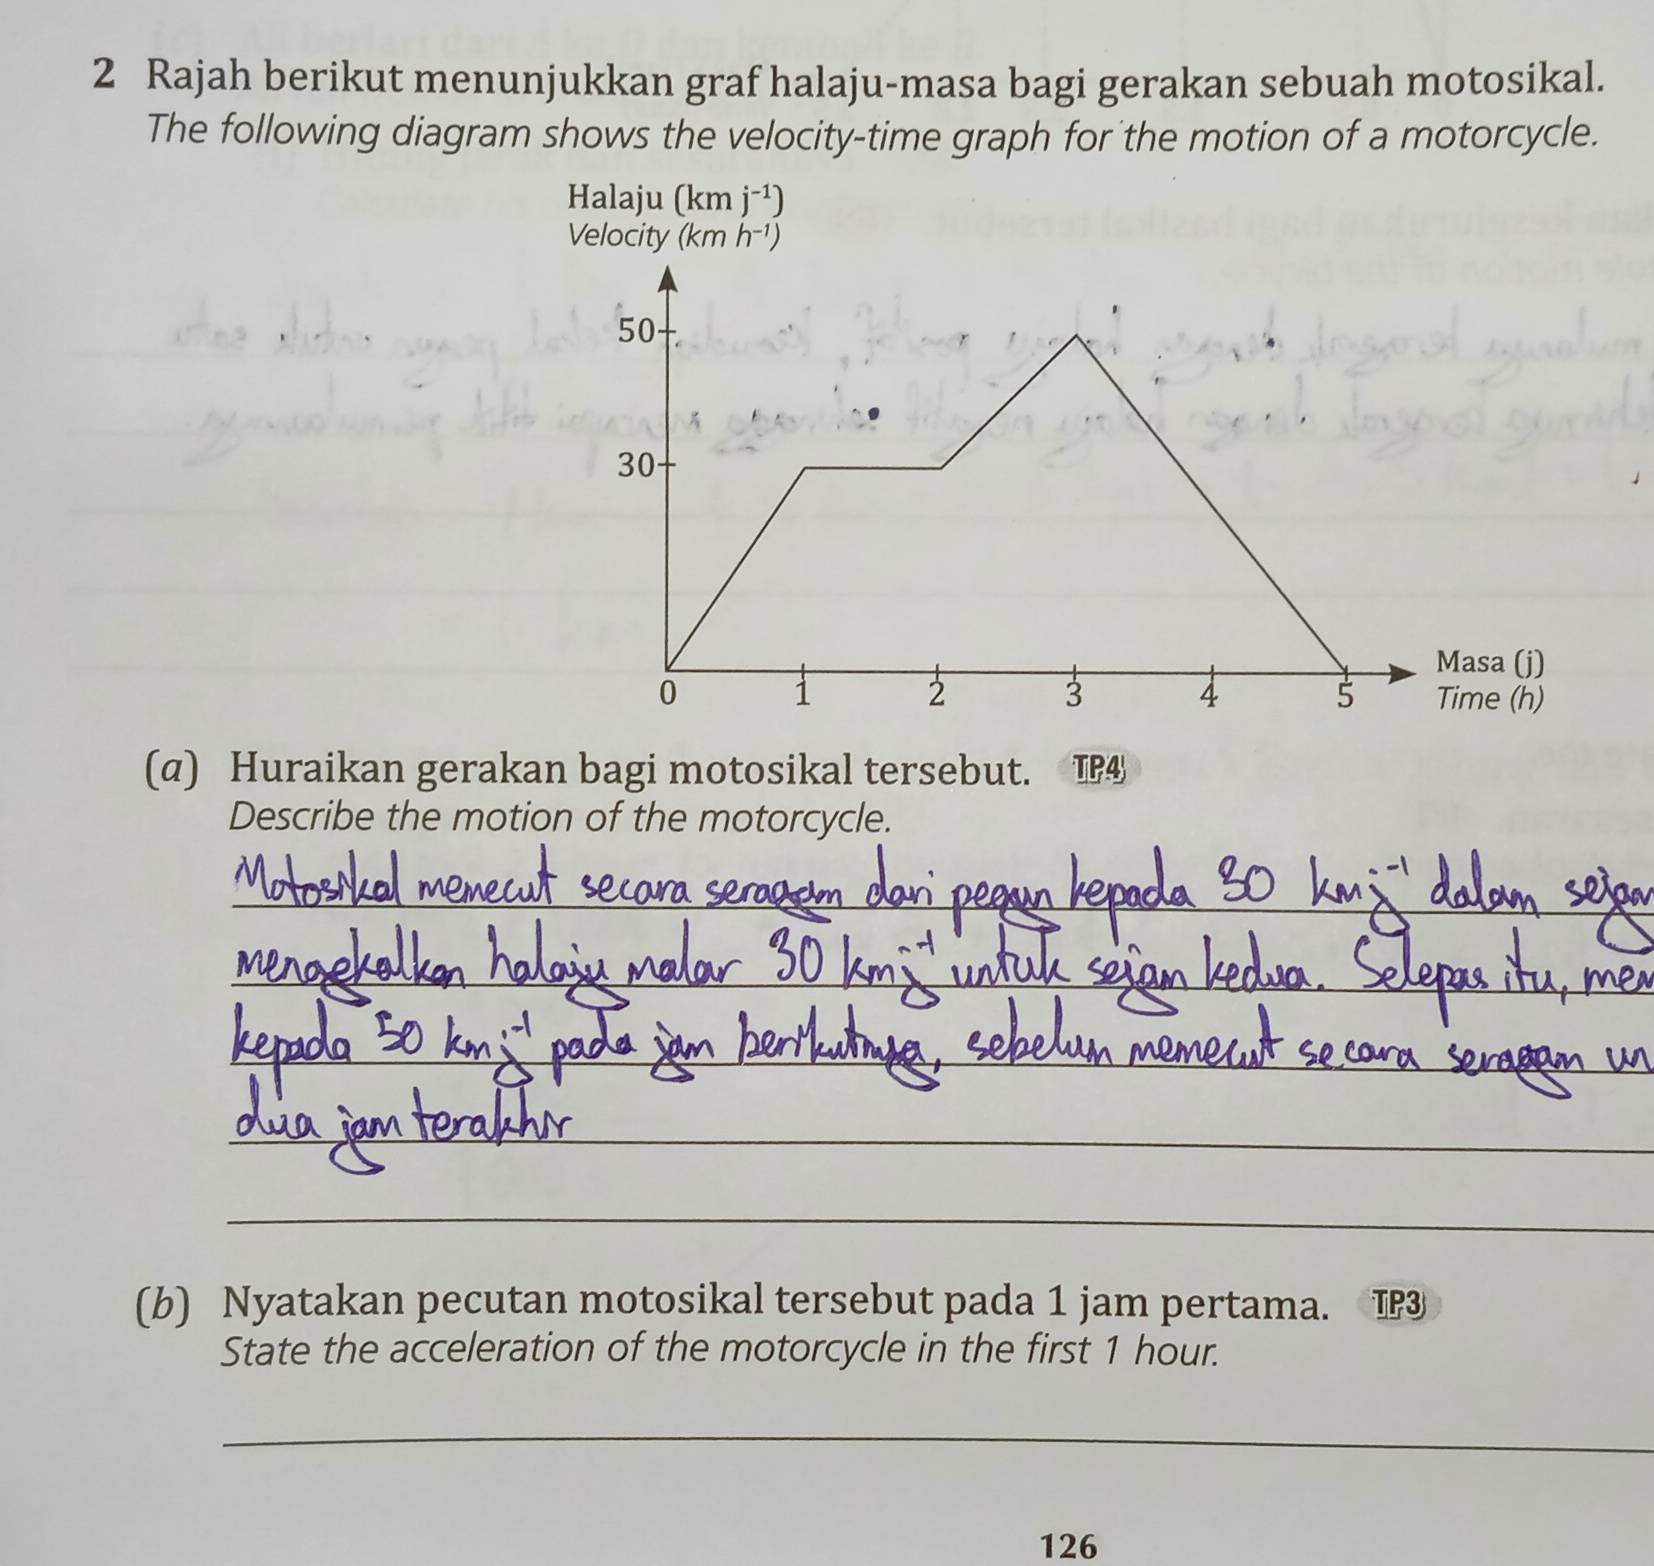 2 Rajah berikut menunjukkan graf halaju-masa bagi gerakan sebuah motosikal.
The following diagram shows the velocity-time graph for the motion of a motorcycle.
Halaju (km j⁻¹)
Velocity (km h⁻¹)
50
30
0 1 2 3 4 5
Masa (j)
Time (h)
(a) Huraikan gerakan bagi motosikal tersebut. TP4
Describe the motion of the motorcycle.
Motosikal memecut secara seragam dari pegun kepada 30 kmj⁻¹ dalam sejam
mengekalkan halaju malar 30 kmj⁻¹ untuk sejam kedua. Selepas itu, mem
kepada 50 kmj⁻¹ pada jam berikutnya, sebelum memecut secara seragam un
dua jam terakhir
(b) Nyatakan pecutan motosikal tersebut pada 1 jam pertama. TP3
State the acceleration of the motorcycle in the first 1 hour.
126